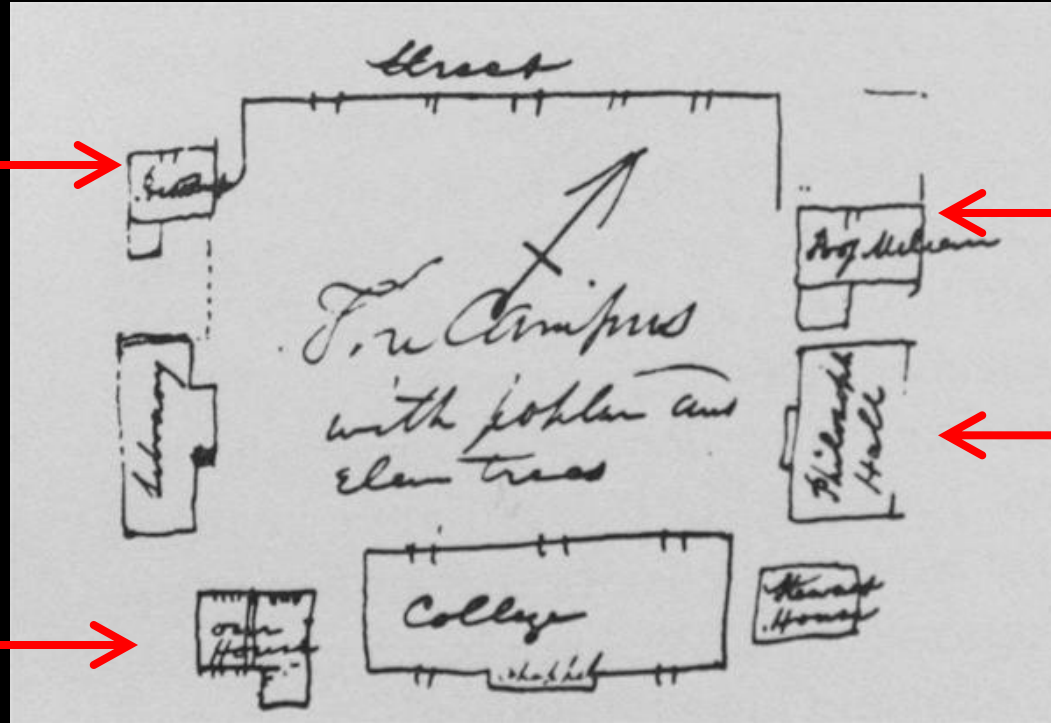 Street
Prof Maclean
The Campus
with poplar and
Elm trees
Library
Philosoph
Hall
Our
House
College
chapel
Steward
House